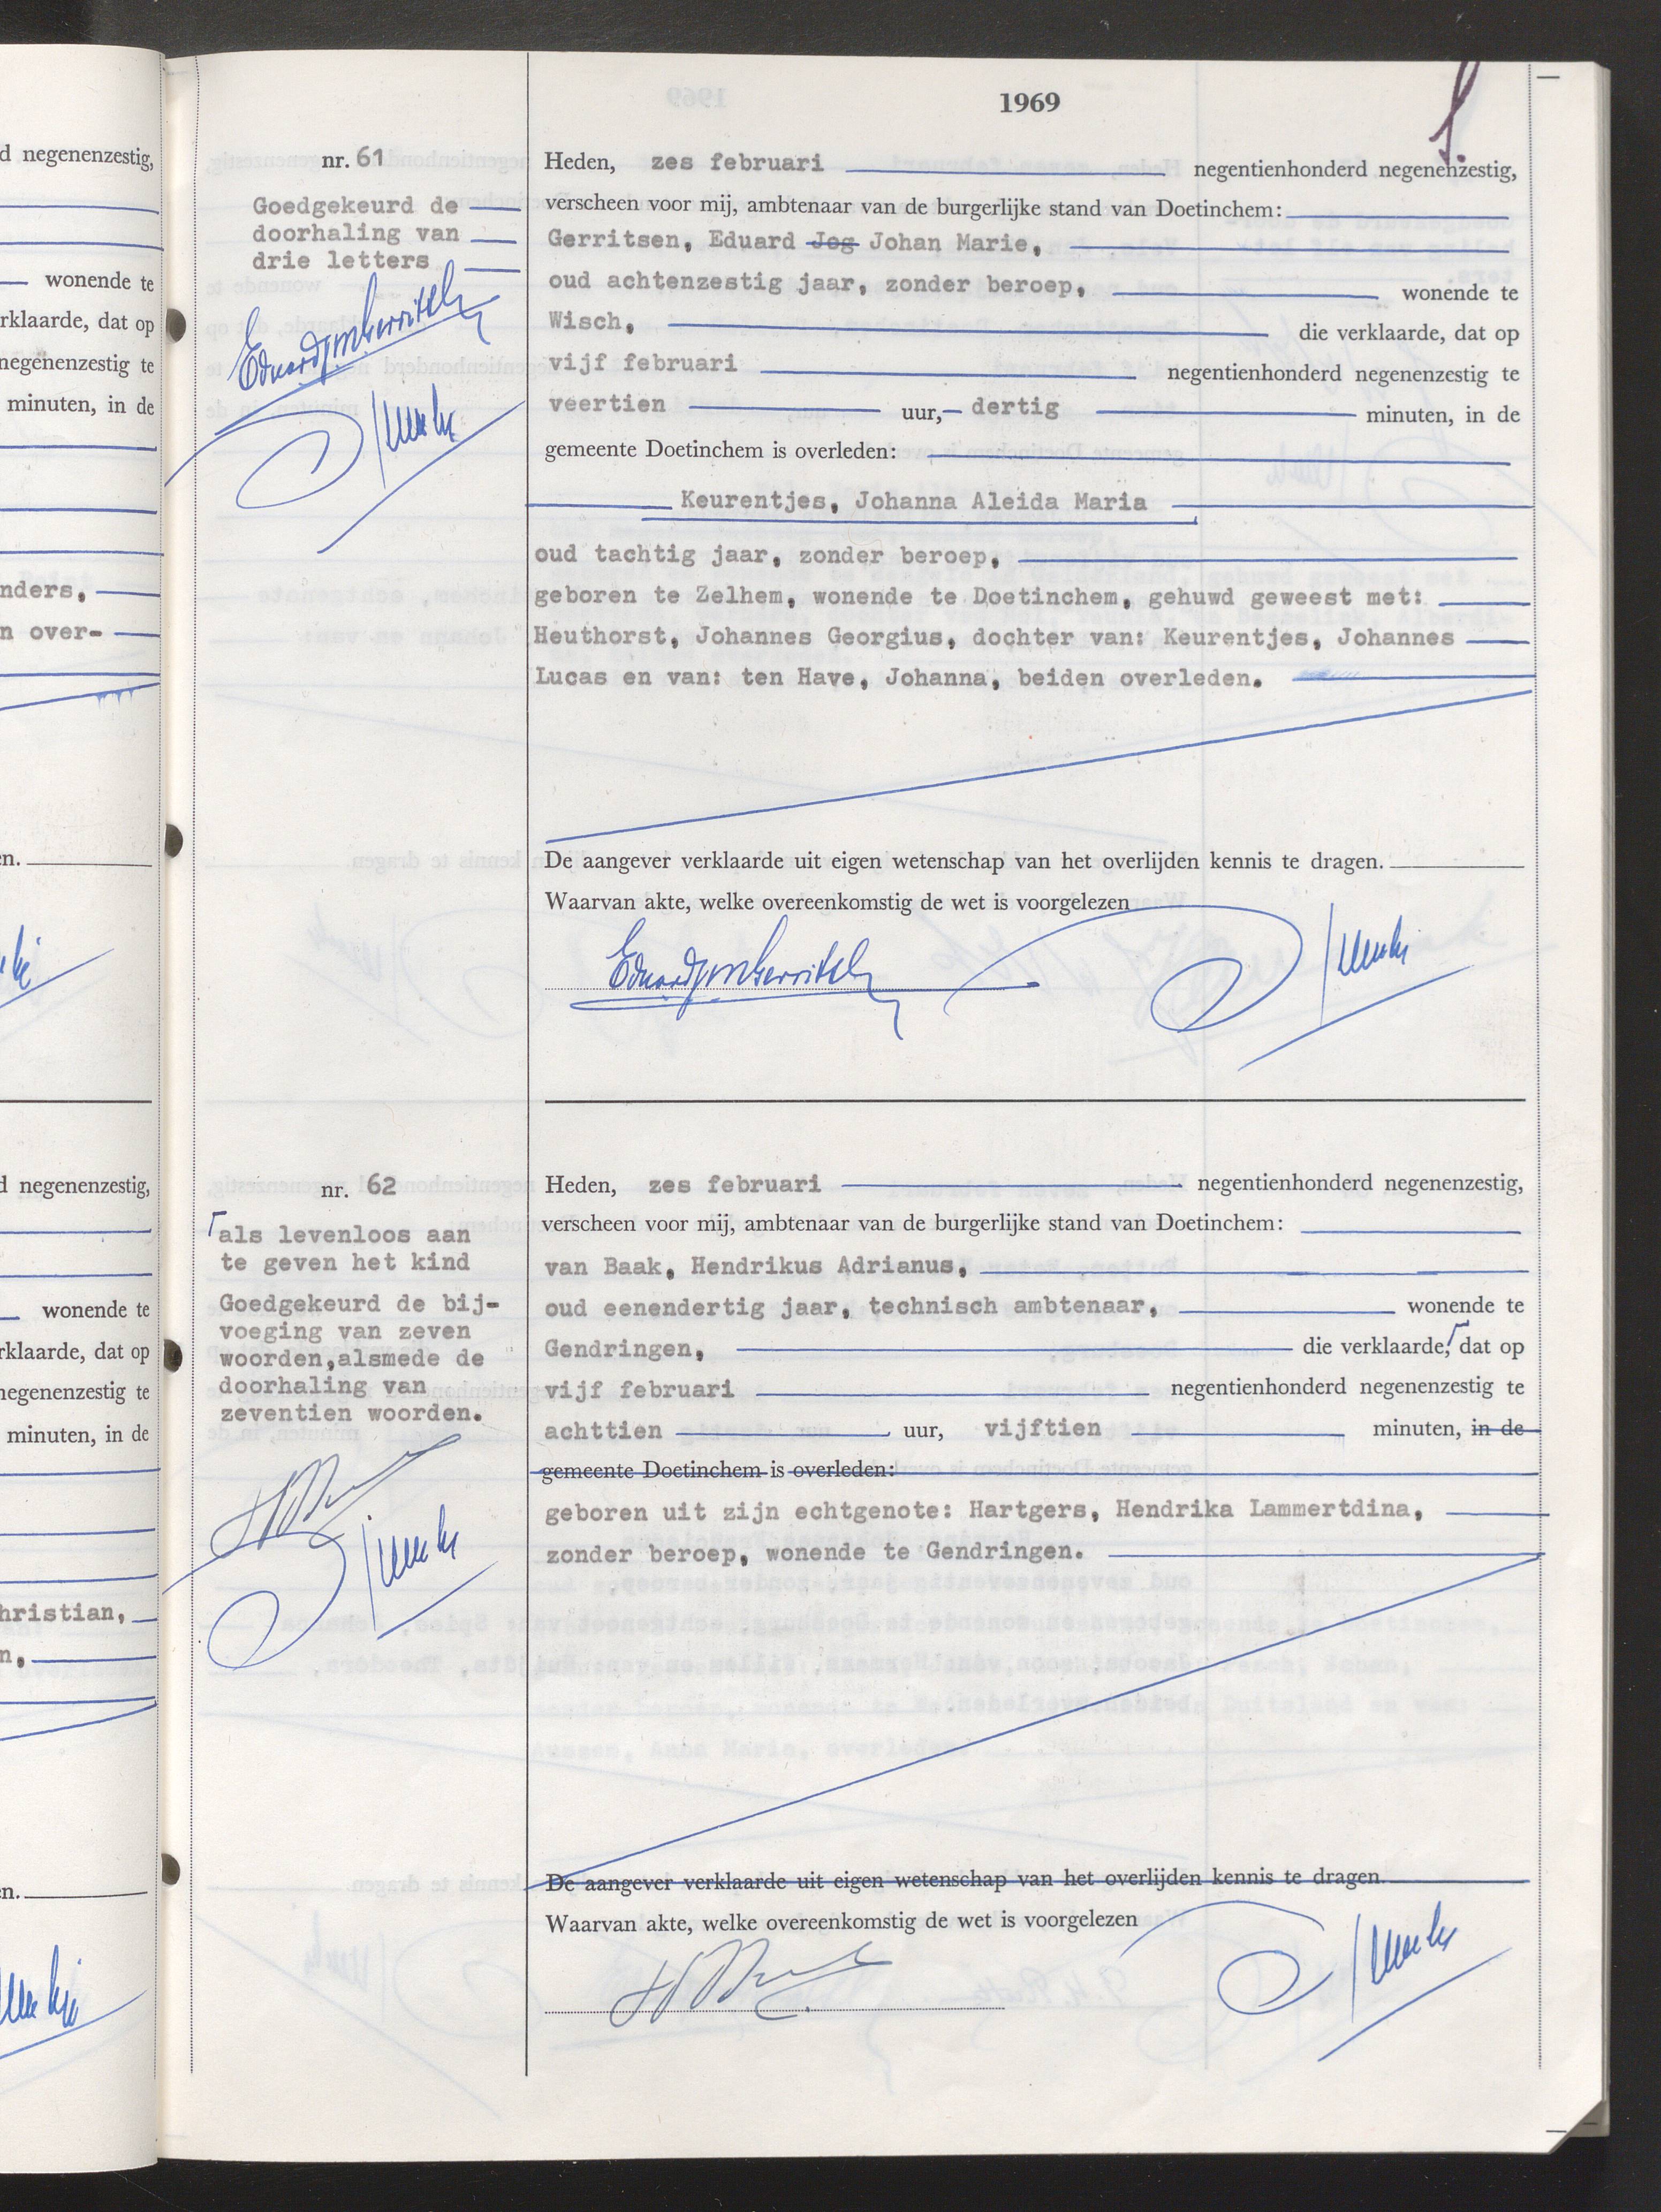 1969
nr. 61
Goedgekeurd de
doorhaling van
drie letters
Heden, zes februari negentienhonderd negenenzestig,
verscheen voor mij, ambtenaar van de burgerlijke stand van Doetinchem:
Gerritsen, Eduard Jog Johan Marie,
oud achtenzestig jaar, zonder beroep, wonende te
Wisch, die verklaarde, dat op
vijf februari negentienhonderd negenenzestig te
veertien uur, dertig minuten, in de
gemeente Doetinchem is overleden:
Keurentjes, Johanna Aleida Maria
oud tachtig jaar, zonder beroep,
geboren te Zelhem, wonende te Doetinchem, gehuwd geweest met:
Heuthorst, Johannes Georgius, dochter van: Keurentjes, Johannes
Lucas en van: ten Have, Johanna, beiden overleden.
De aangever verklaarde uit eigen wetenschap van het overlijden kennis te dragen.
Waarvan akte, welke overeenkomstig de wet is voorgelezen
nr. 62
als levenloos aan
te geven het kind
Goedgekeurd de bij-
voeging van zeven
woorden,alsmede de
doorhaling van
zeventien woorden.
Heden, zes februari negentienhonderd negenenzestig,
verscheen voor mij, ambtenaar van de burgerlijke stand van Doetinchem:
van Baak, Hendrikus Adrianus,
oud eenendertig jaar, technisch ambtenaar, wonende te
Gendringen, die verklaarde, dat op
vijf februari negentienhonderd negenenzestig te
achttien uur, vijftien minuten, in de
gemeente Doetinchem is overleden:
geboren uit zijn echtgenote: Hartgers, Hendrika Lammertdina,
zonder beroep, wonende te Gendringen.
De aangever verklaarde uit eigen wetenschap van het overlijden kennis te dragen.
Waarvan akte, welke overeenkomstig de wet is voorgelezen
d negenenzestig,
wonende te
rklaarde, dat op
negenenzestig te
minuten, in de
nders,
n over-
en.
d negenenzestig,
wonende te
rklaarde, dat op
negenenzestig te
minuten, in de
hristian,
n,
en.